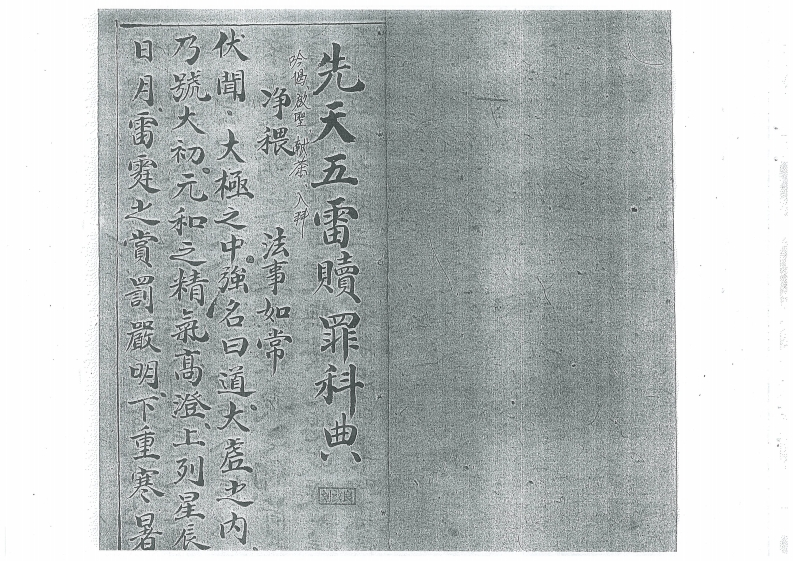 先天五雷贖罪科典
吟偈啟聖 獻茶 入拜
净穢 法事如常
伏聞大極之中強名曰道大虛之内
乃號大初元和之精氣高澄上列星辰
日月雷霆之賞罰嚴明下重寒暑